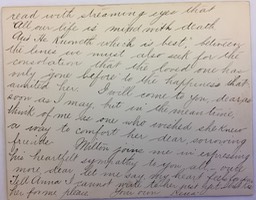 read with streaming eyes that
"All our life is mixed with death
And He knoweth which is best," between
the lines we must also seek for the
consolation that the loved one has
only gone before to the happiness that
awaited her. I will come to you, dearie
soon as I may, but in the meantime,
think of me as one who wished she knew
a way to comfort her dear, sorrowing
friends. Milton joins me in expressing
his heartfelt sympathy to you all. Once
more dear, let me say, my heart feels for you
Tell Anna I cannot write to her just yet
her for me please. Your own